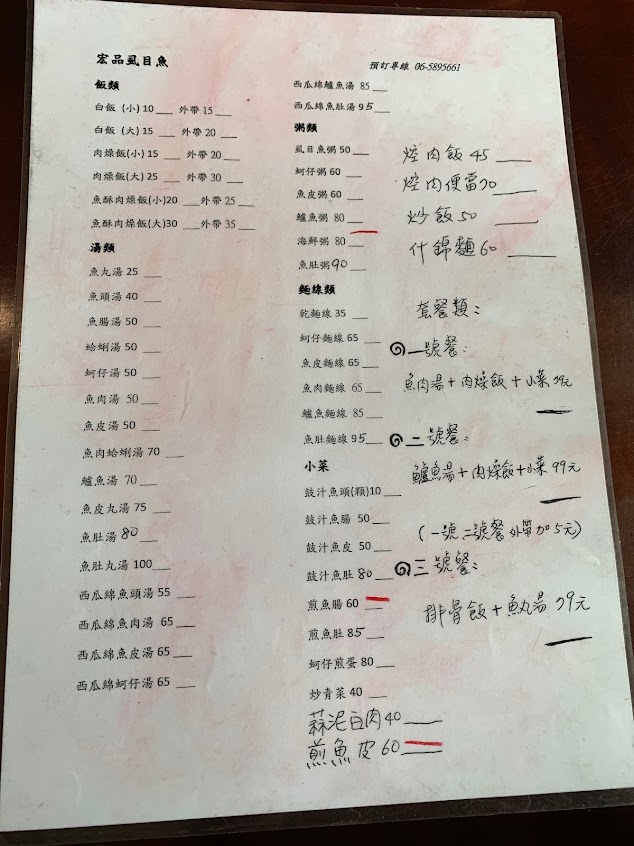 宏品虱目魚
預訂專線 06-5895661
飯類
白飯 (小) 10 ___ 外帶 15 ___
白飯 (大) 15 ___ 外帶 20 ___
肉燥飯(小) 15 ___ 外帶 20 ___
肉燥飯(大) 25 ___ 外帶 30 ___
魚酥肉燥飯(小)20 ___外帶 25 ___
魚酥肉燥飯(大)30 ___外帶 35 ___
湯類
魚丸湯 25 ___
魚頭湯 40 ___
魚腸湯 50 ___
蛤蜊湯 50 ___
蚵仔湯 50 ___
魚肉湯 50 ___
魚皮湯 50 ___
魚肉蛤蜊湯 70 ___
鱸魚湯 70 ___
魚皮丸湯 75 ___
魚肚湯 80 ___
魚肚丸湯 100___
西瓜綿魚頭湯 55 ___
西瓜綿魚肉湯 65 ___
西瓜綿魚皮湯 65 ___
西瓜綿蚵仔湯 65 ___
西瓜綿鱸魚湯 85 ___
西瓜綿魚肚湯 95 ___
粥類
虱目魚粥 50 ___
蚵仔粥 60 ___
魚皮粥 60 ___
鱸魚粥 80 ___
海鮮粥 80 ___
魚肚粥 90 ___
麵線類
乾麵線 35 ___
蚵仔麵線 65 ___
魚皮麵線 65 ___
魚肉麵線 65 ___
鱸魚麵線 85 ___
魚肚麵線 95 ___
小菜
豉汁魚頭(顆)10 ___
豉汁魚腸 50 ___
豉汁魚皮 50 ___
豉汁魚肚 80 ___
煎魚腸 60 ___
煎魚肚 85 ___
蚵仔煎蛋 80 ___
炒青菜 40 ___
蒜泥白肉 40 ___
煎魚皮 60 ___
焢肉飯 45 ___
焢肉便當70 ___
炒飯 50 ___
什錦麵 60 ___
套餐類:
一號餐:
魚肉湯+肉燥飯+小菜 79元 ___
二號餐:
鱸魚湯+肉燥飯+小菜 99元 ___
(一號二號餐外帶加5元)
三號餐:
排骨飯+魚丸湯 79元 ___